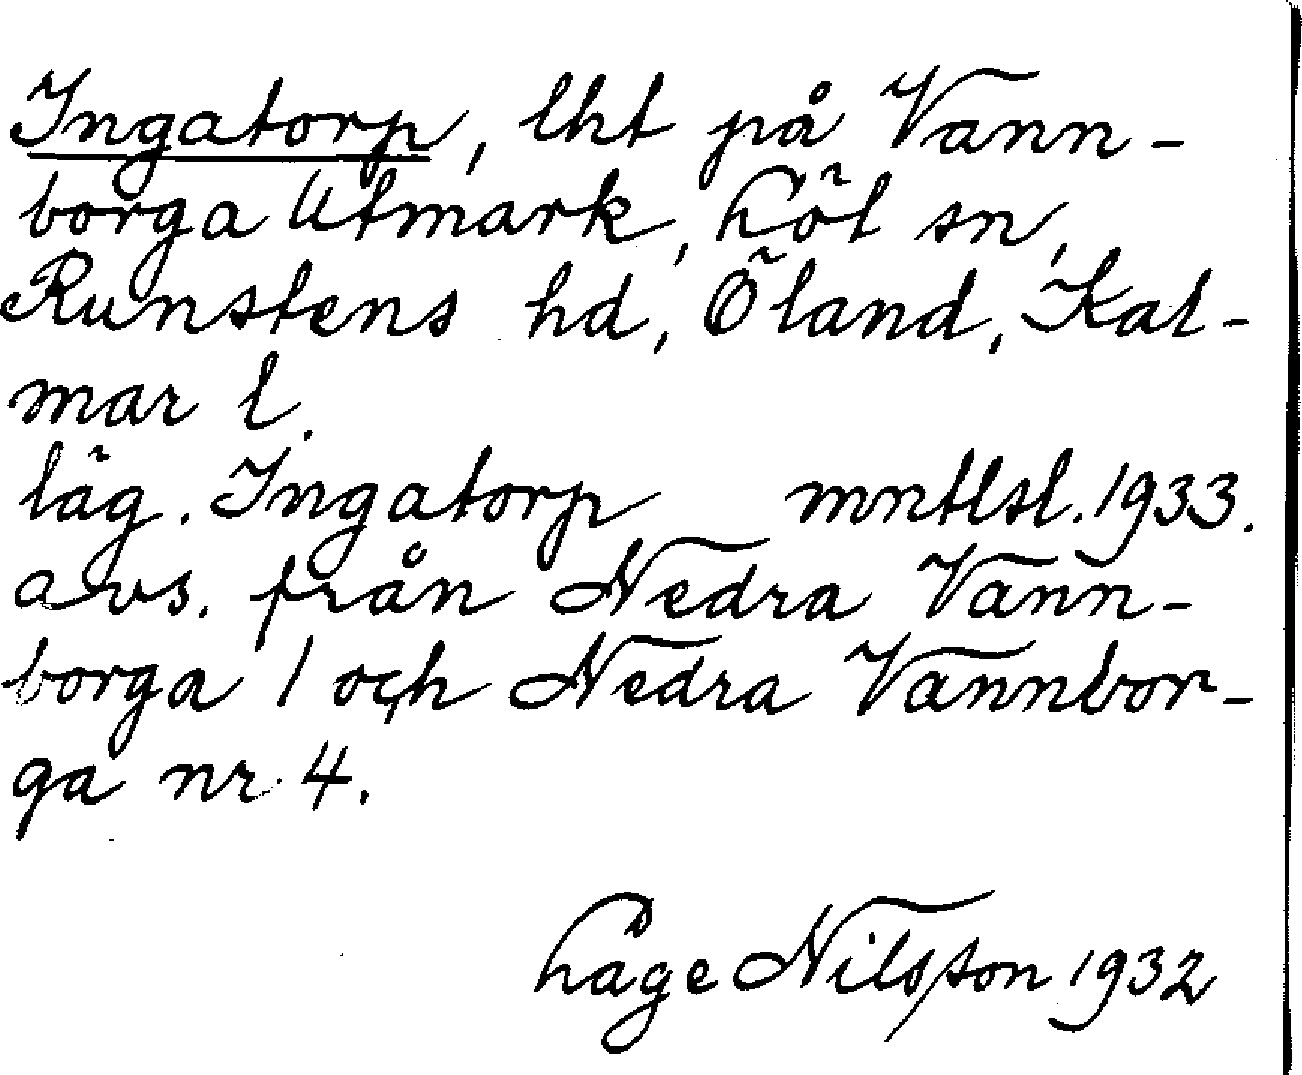 Ingatorp, lht på Vann-
borga Utmark, Löt sn,
Runstens hd, Öland, Kal-
mar l.
läg. Ingatorp mntlsl. 1933.
avs. från Nedra Vann-
borga 1 och Nedra Vannbor-
ga nr 4.
Låge Nilsson 1932